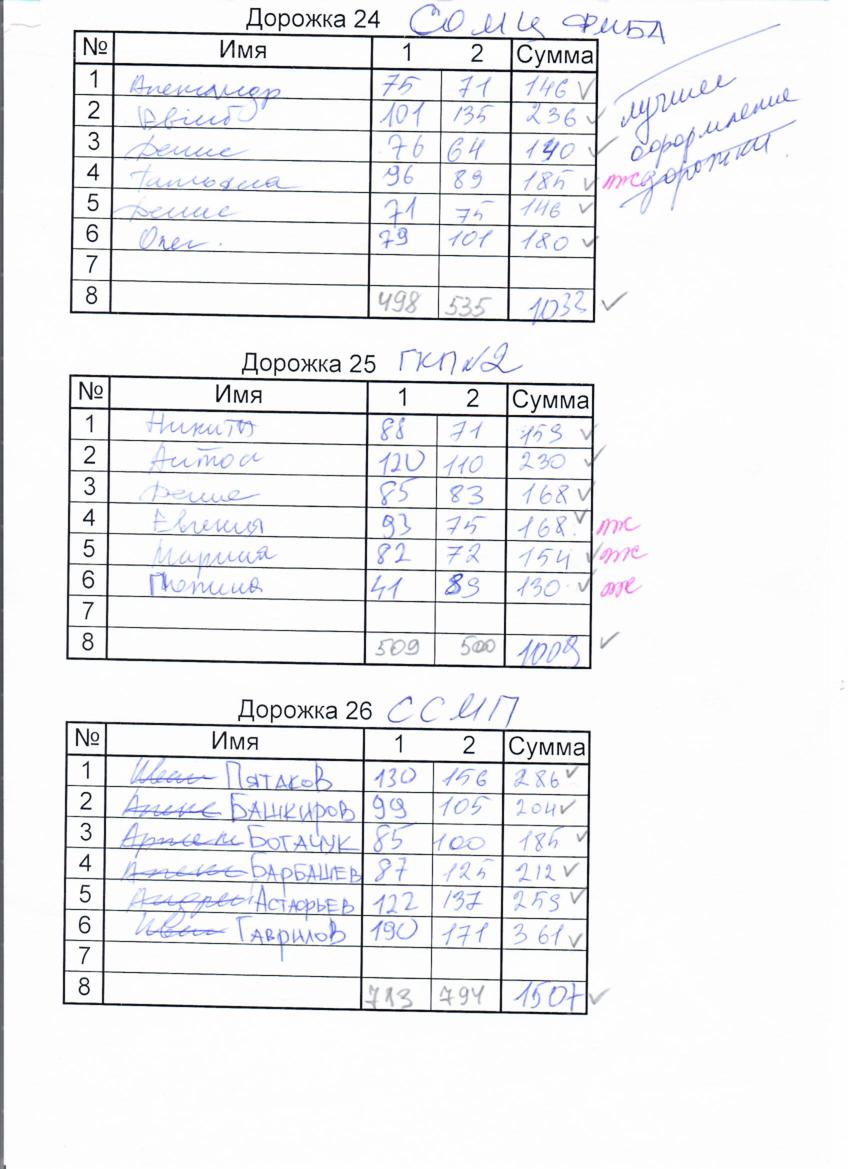 Дорожка 24 СОМЦ ФМБА
№ Имя 1 2 Сумма
1 Александр 75 71 146 ✓
2 101 135 236 ✓
3 Денис 76 64 140 ✓
4 Татьяна 96 89 185 ✓ ж
5 Денис 71 75 146 ✓
6 Олег. 79 101 180 ✓
7
8 498 535 1033 ✓
лучшее
оформление
дорожки.
Дорожка 25 ГКП №2
№ Имя 1 2 Сумма
1 Никита 88 71 159 ✓
2 Антон 120 110 230 ✓
3 Денис 85 83 168 ✓
4 Евгения 93 75 168. ✓ ж
5 Марина 82 72 154 ✓ ж
6 41 89 130 ✓ ж
7
8 509 500 1009 ✓
Дорожка 26 ССМП
№ Имя 1 2 Сумма
1 Иван Пятаков 130 156 286 ✓
2 Алекс Башкиров 99 105 204 ✓
3 Артем Богачук 85 100 185 ✓
4 Алекс Барбашев 87 125 212 ✓
5 Андрей Астафьев 122 137 259 ✓
6 Иван Гаврилов 190 171 361 ✓
7
8 713 794 1507 ✓